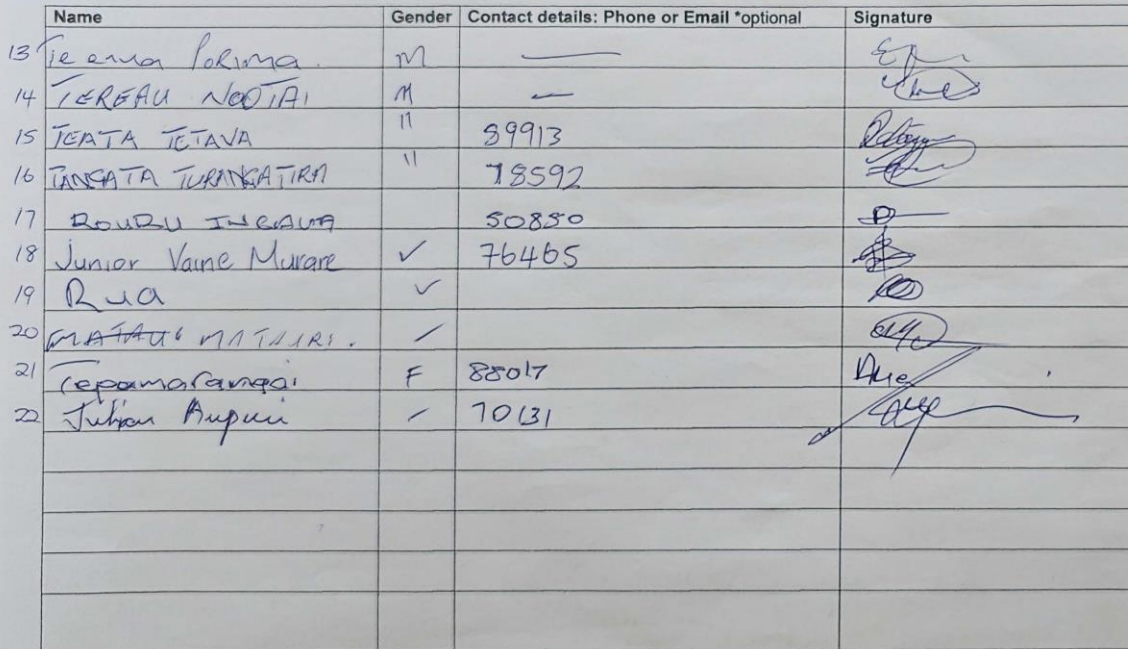 Name Gender Contact details: Phone or Email *optional Signature
13 Teanua Porima. M —
14 TEREAU NOOTAI M —
15 TEATA TETAVA " 89913
16 TANGATA TURANGATIRA " 78592
17 ROURU INGAUA 50850
18 Junior Vaine Murare ✓ 76465
19 Rua ✓
20 MATAU
21 Tepamarangai F 88017
22 Julian Aupuni 70131